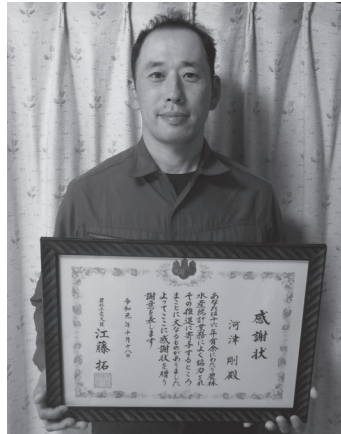 感謝状
河津 剛 殿
あなたは十六年有余にわたり農林
水産統計業務によく協力され
その推進に寄与するところ
まことに大なるものがありました
よってここに感謝状を贈り
謝意を表します
令和元年十月十八日
農林水産大臣 江藤 拓